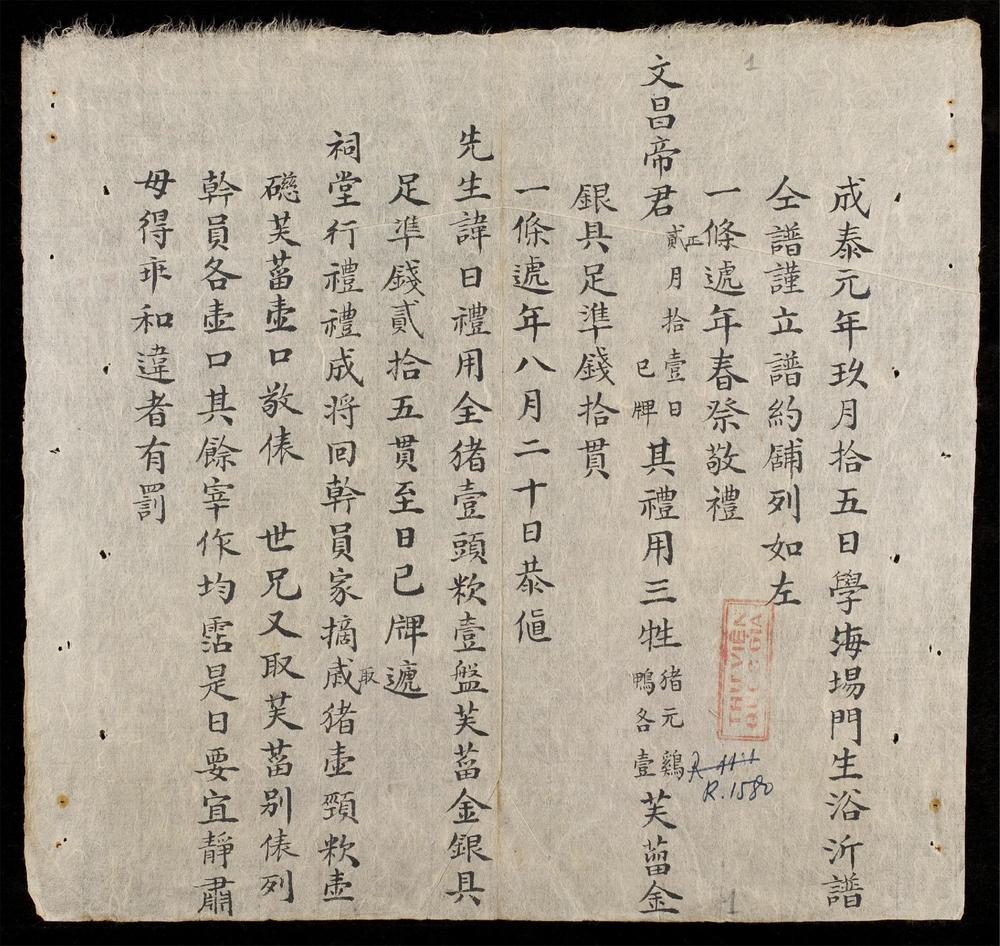 1
成泰元年玖月拾五日學海場門生浴沂譜
仝譜謹立譜約舖列如左
一條遞年春祭敬禮
文昌帝君正貳月拾壹日巳牌其禮用三牲猪元鷄鴨各壹芙蒥金
銀具足準錢拾貫
一條遞年八月二十日恭值
先生諱日禮用全猪壹頭粆壹盤芙蒥金銀具
足準錢貳拾五貫至日巳牌遞
祠堂行禮禮成将回幹員家摘取猪壶頸粆壶
礠芙蒥壶口敬俵 世兄又取芙蒥別俵列
幹員各壶口其餘宰作均霑是日要宜靜肅
毋得乖和違者有罰
THƯ VIỆN
QUỐC GIA
R.1580
1